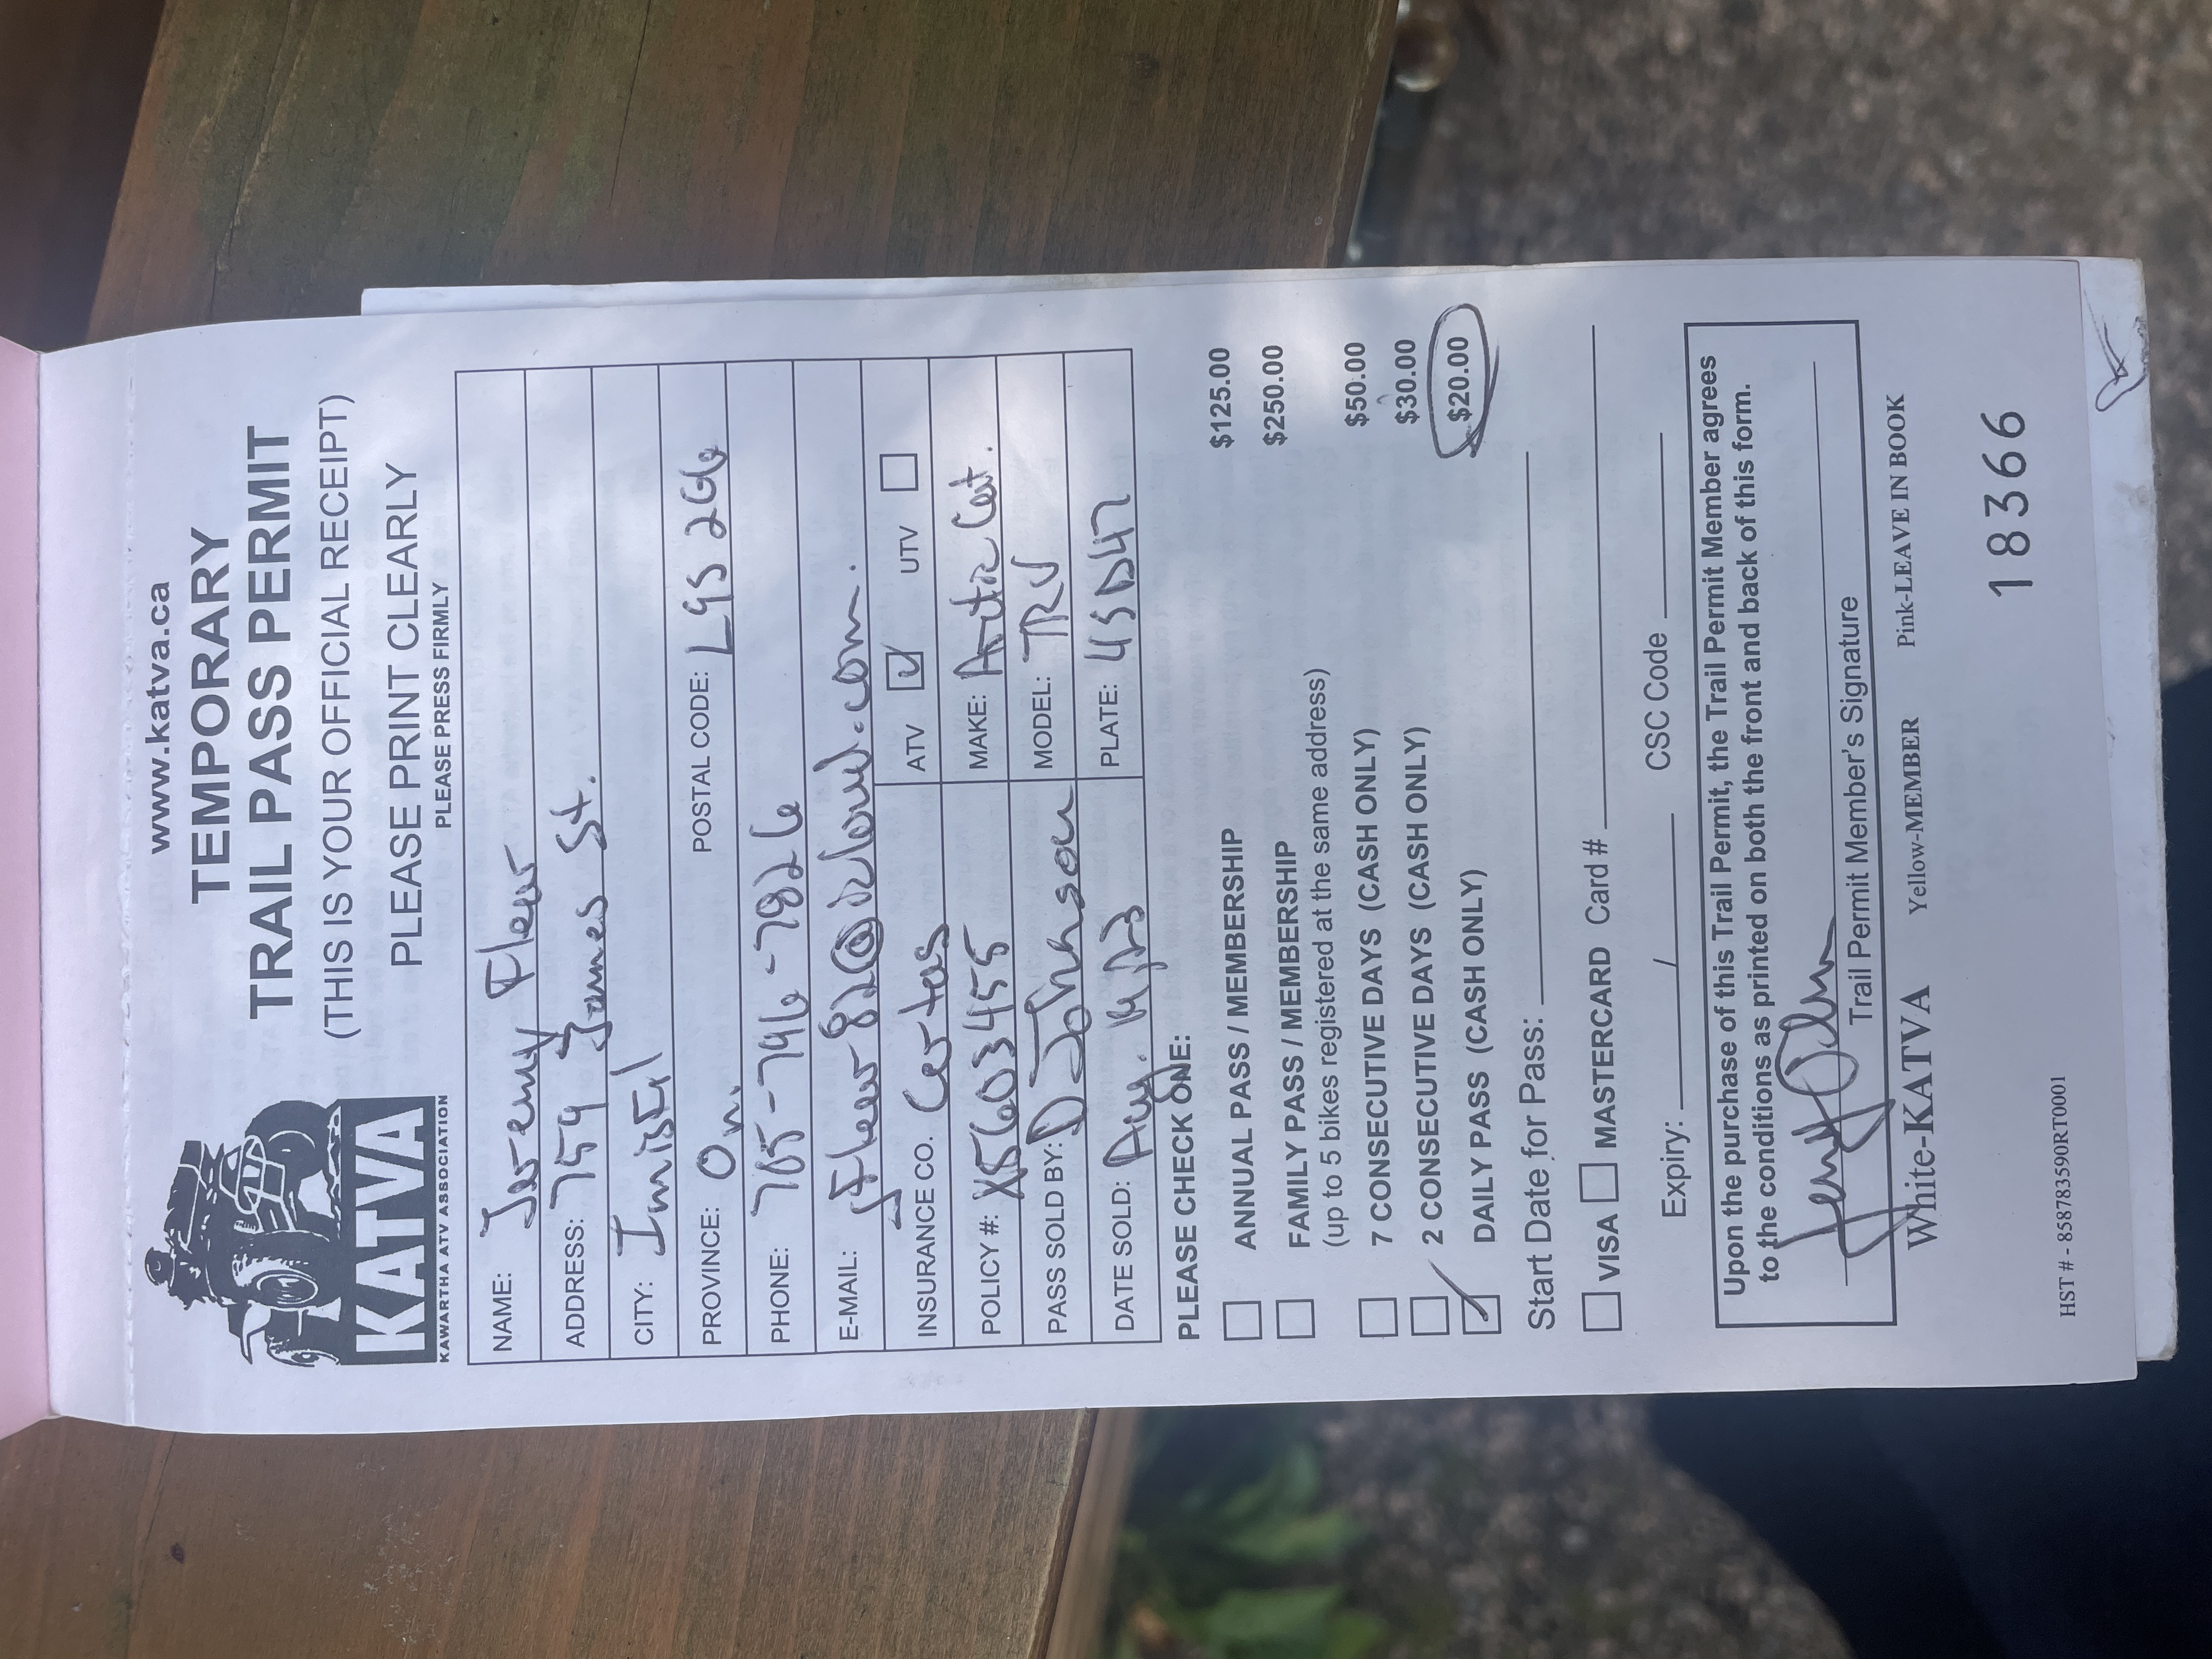 www.katva.ca
TEMPORARY
TRAIL PASS PERMIT
(THIS IS YOUR OFFICIAL RECEIPT)
PLEASE PRINT CLEARLY
PLEASE PRESS FIRMLY
KATVA
KAWARTHA ATV ASSOCIATION
NAME: Jeremy Flewr
ADDRESS: 759 James St.
CITY: Innisfil
PROVINCE: On. POSTAL CODE: L9S 2G6
PHONE: 705-746-7826
E-MAIL: jflewr82@icloud.com.
INSURANCE CO. Certas ATV ☑ UTV ☐
POLICY #: X5603455 MAKE: Artic Cat.
PASS SOLD BY: D Johnson MODEL: TRV
DATE SOLD: Aug. PLATE: 4SD47
PLEASE CHECK ONE:
☐ ANNUAL PASS / MEMBERSHIP $125.00
☐ FAMILY PASS / MEMBERSHIP $250.00
(up to 5 bikes registered at the same address)
☐ 7 CONSECUTIVE DAYS (CASH ONLY) $50.00
☐ 2 CONSECUTIVE DAYS (CASH ONLY) $30.00
☑ DAILY PASS (CASH ONLY) $20.00
Start Date for Pass:
☐ VISA ☐ MASTERCARD Card #
Expiry: / CSC Code
Upon the purchase of this Trail Permit, the Trail Permit Member agrees
to the conditions as printed on both the front and back of this form.
Trail Permit Member's Signature
White-KATVA Yellow-MEMBER Pink-LEAVE IN BOOK
18366
HST # - 858783590RT0001